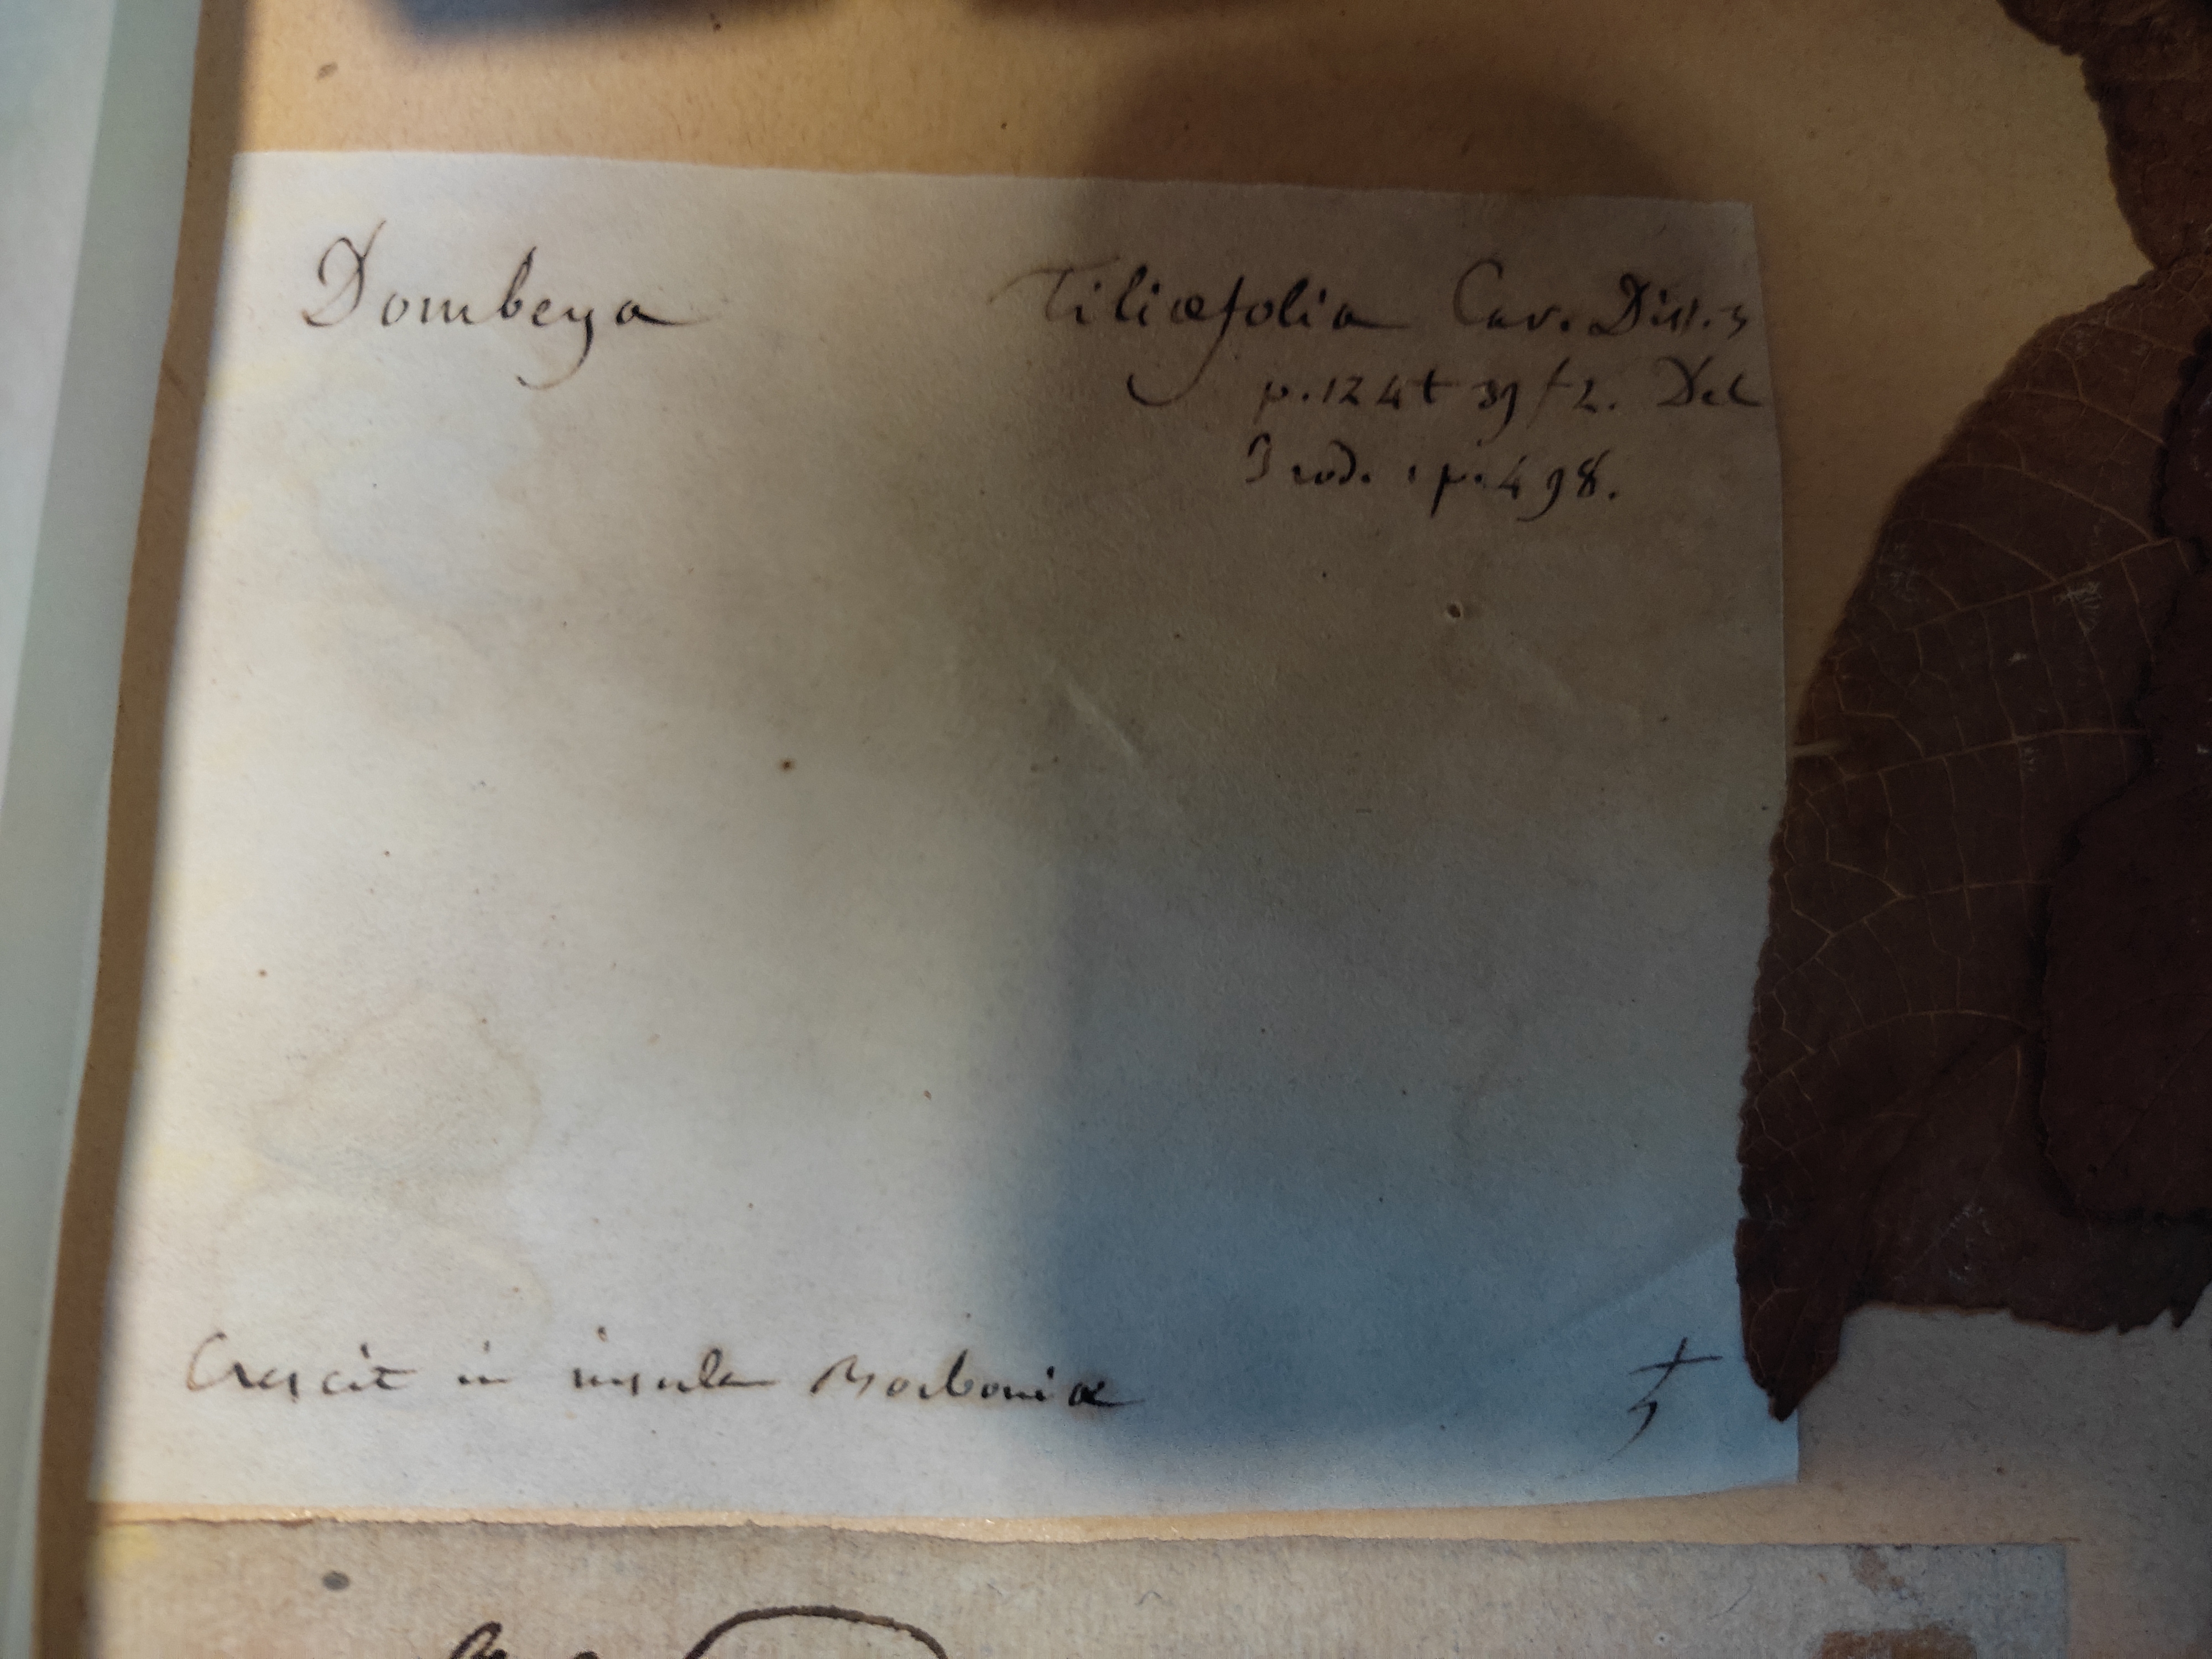 Dombeya Tiliæfolia Cav. Diss. 3
p. 124 t 39 f 2. Dec
Prod. 1 p. 498.
Crescit in insula Borboniæ ♄